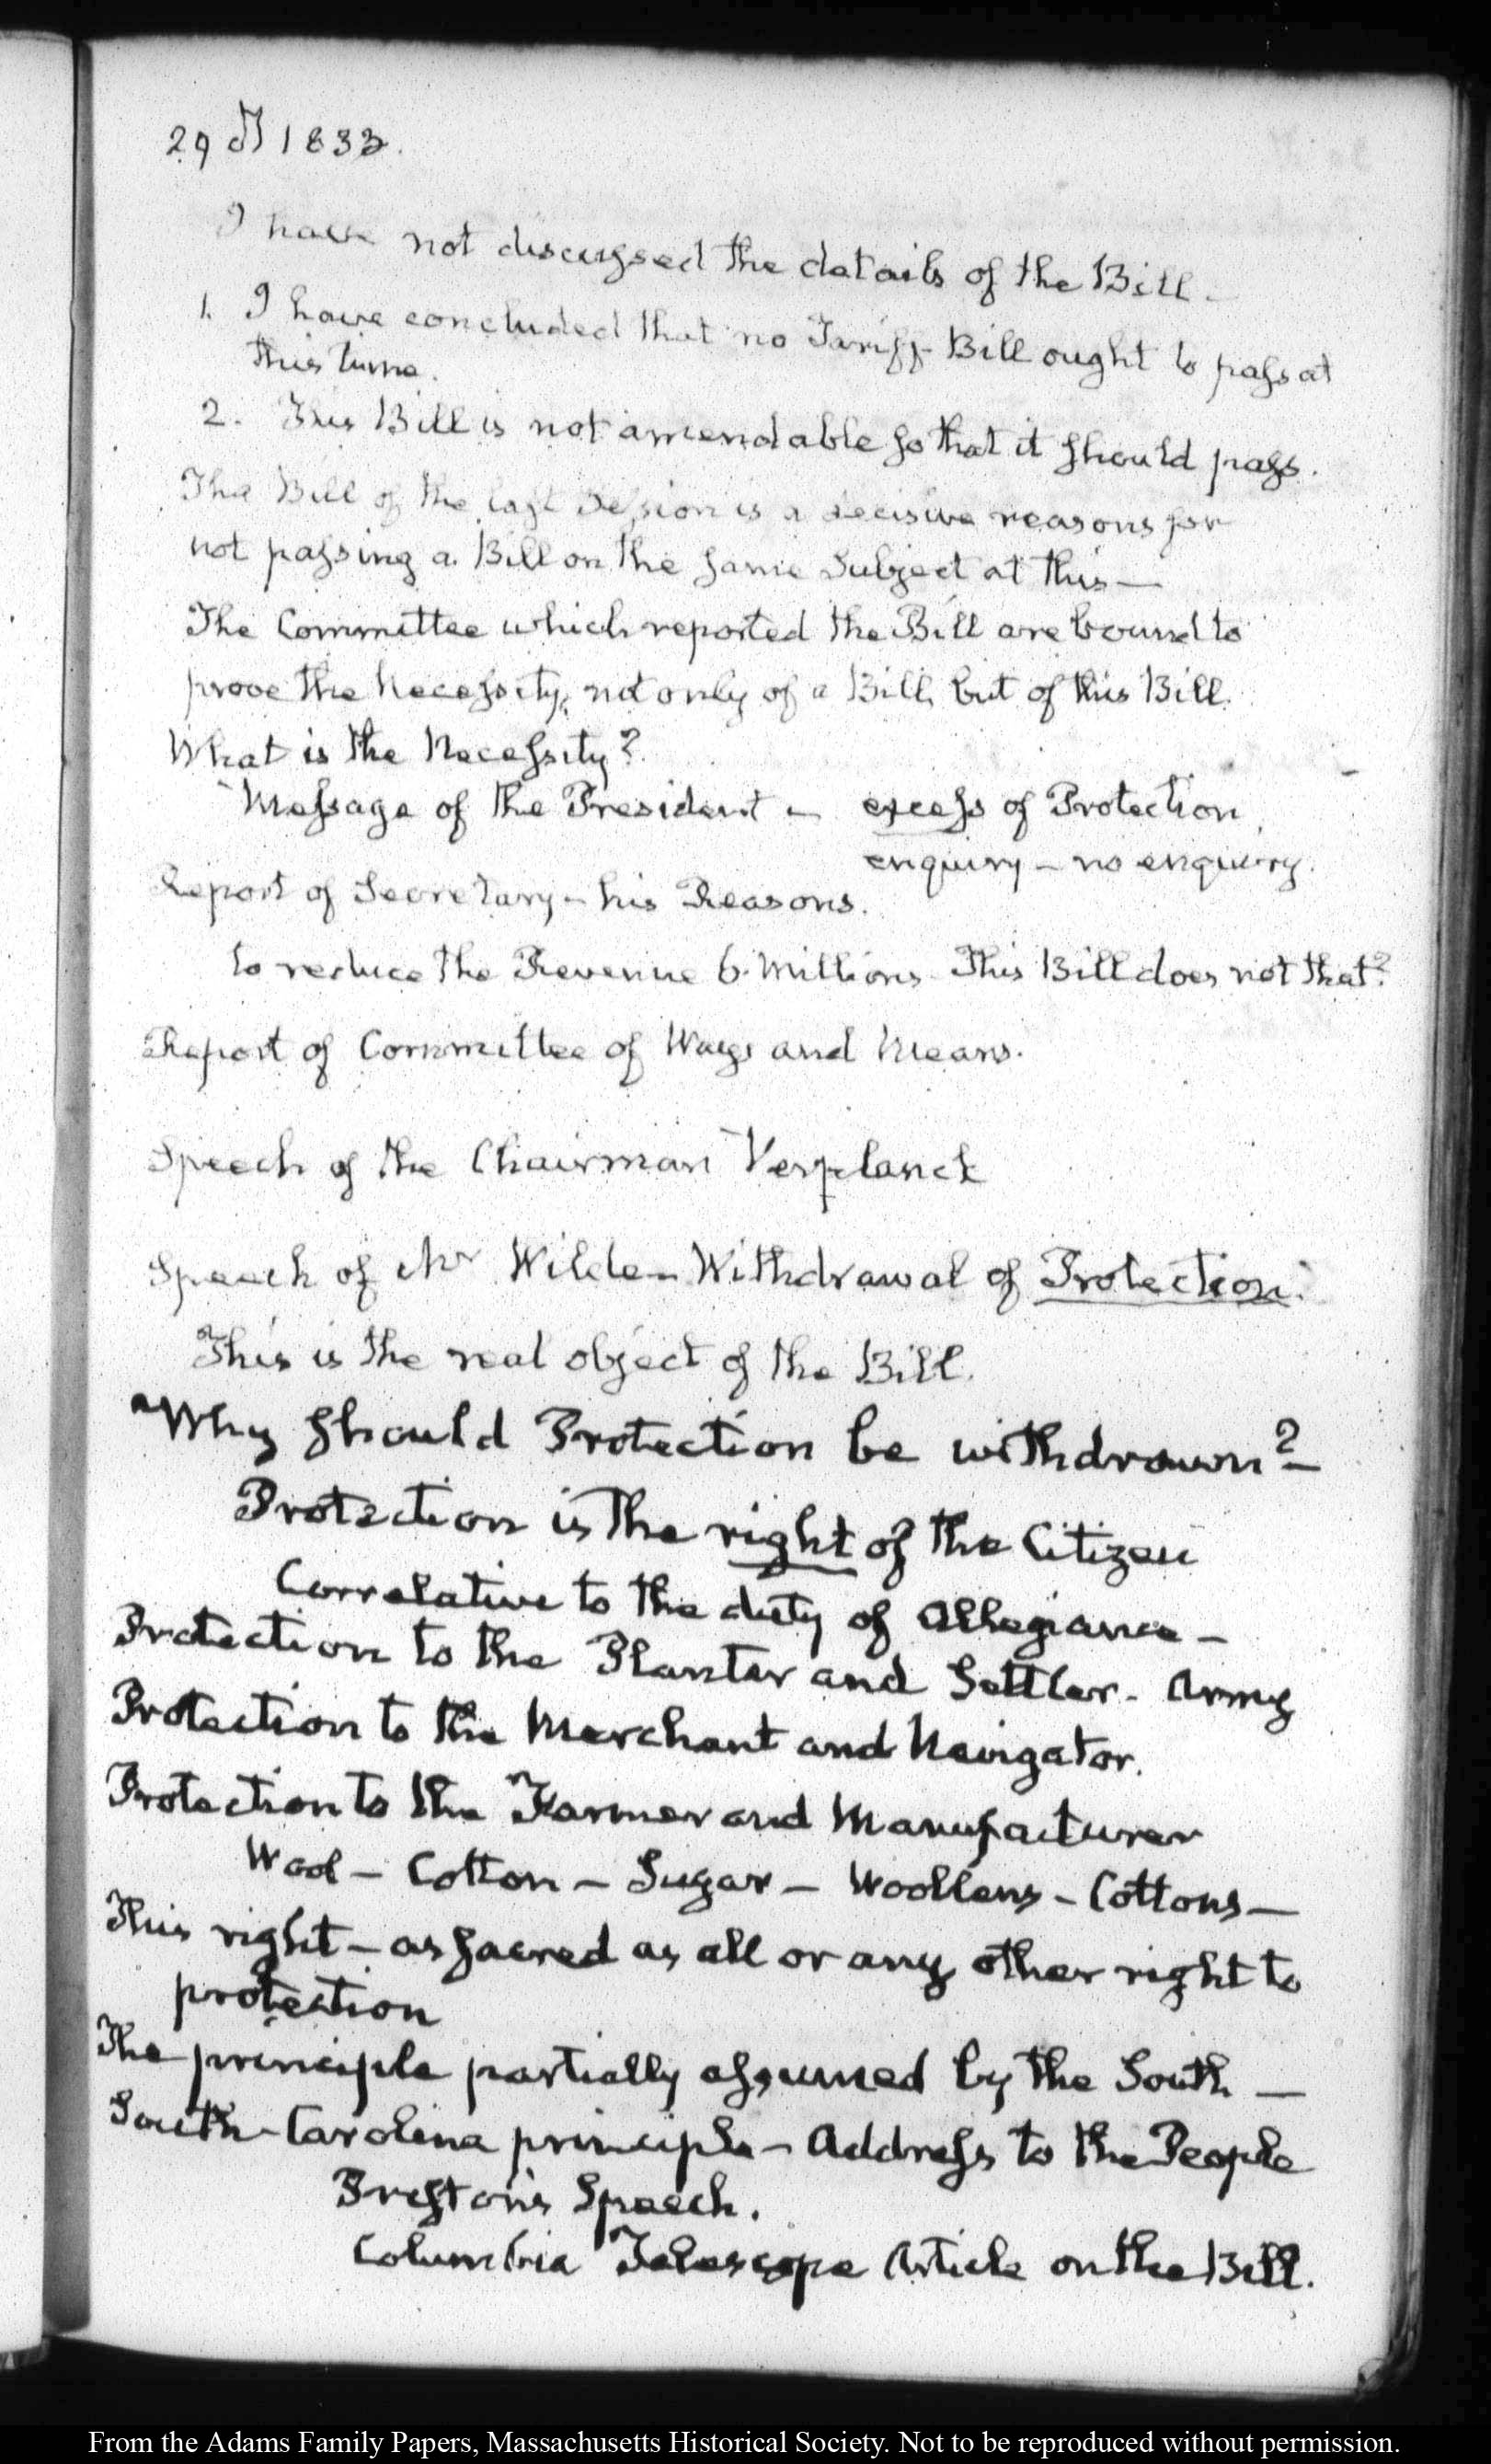 29 1833.
I have not discussed the details of the Bill –
1. I have concluded that no Tariff Bill ought to pass at
this time.
2. This Bill is not amendable so that it should pass.
The Bill of the last Session is a decisive reasons for
not passing a Bill on the same Subject at this —
The Committee which reported the Bill are bound to
prove the necessity, not only of a Bill, but of this Bill.
What is the Necessity?
Message of the President – excess of Protection
enquiry – no enquiry.
Report of Secretary – his Reasons.
to reduce the Revenue 6. Millions This Bill does not that?
Report of Committee of Ways and Means.
Speech of the Chairman Verplanck
Speech of Mr Wilde – Withdrawal of Protection.
This is the real object of the Bill.
Why should Protection be withdrawn? –
Protection is the right of the Citizen
Correlative to the duty of Allegiance –
Protection to the Planter and Settler – Army
Protection to the Merchant and Navigator.
Protection to the Farmer and Manufacturer
Wool – Cotton – Sugar – Woollens – Cottons —
This right – as sacred as all or any other right to
protection
The principle partially assumed by the South —
South-Carolina principle – Address to the People
Preston's Speech.
Columbia Telescope Article on the Bill.
From the Adams Family Papers, Massachusetts Historical Society. Not to be reproduced without permission.